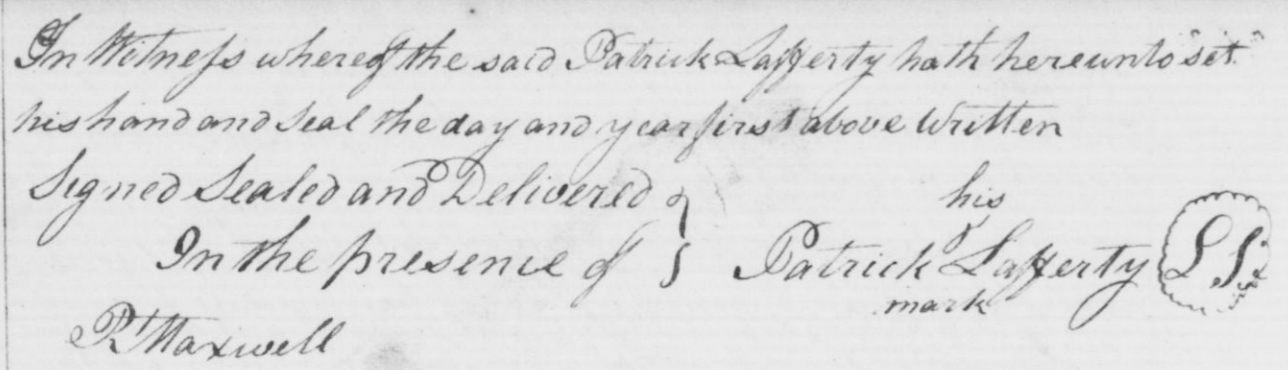 In Witness whereof the said Patrick Lafferty hath hereunto "set"
his hand and seal the day and year first above Written
Signed Sealed and Delivered }
In the presence of } Patrick his Lafferty L S
mark
Rt Maxwell